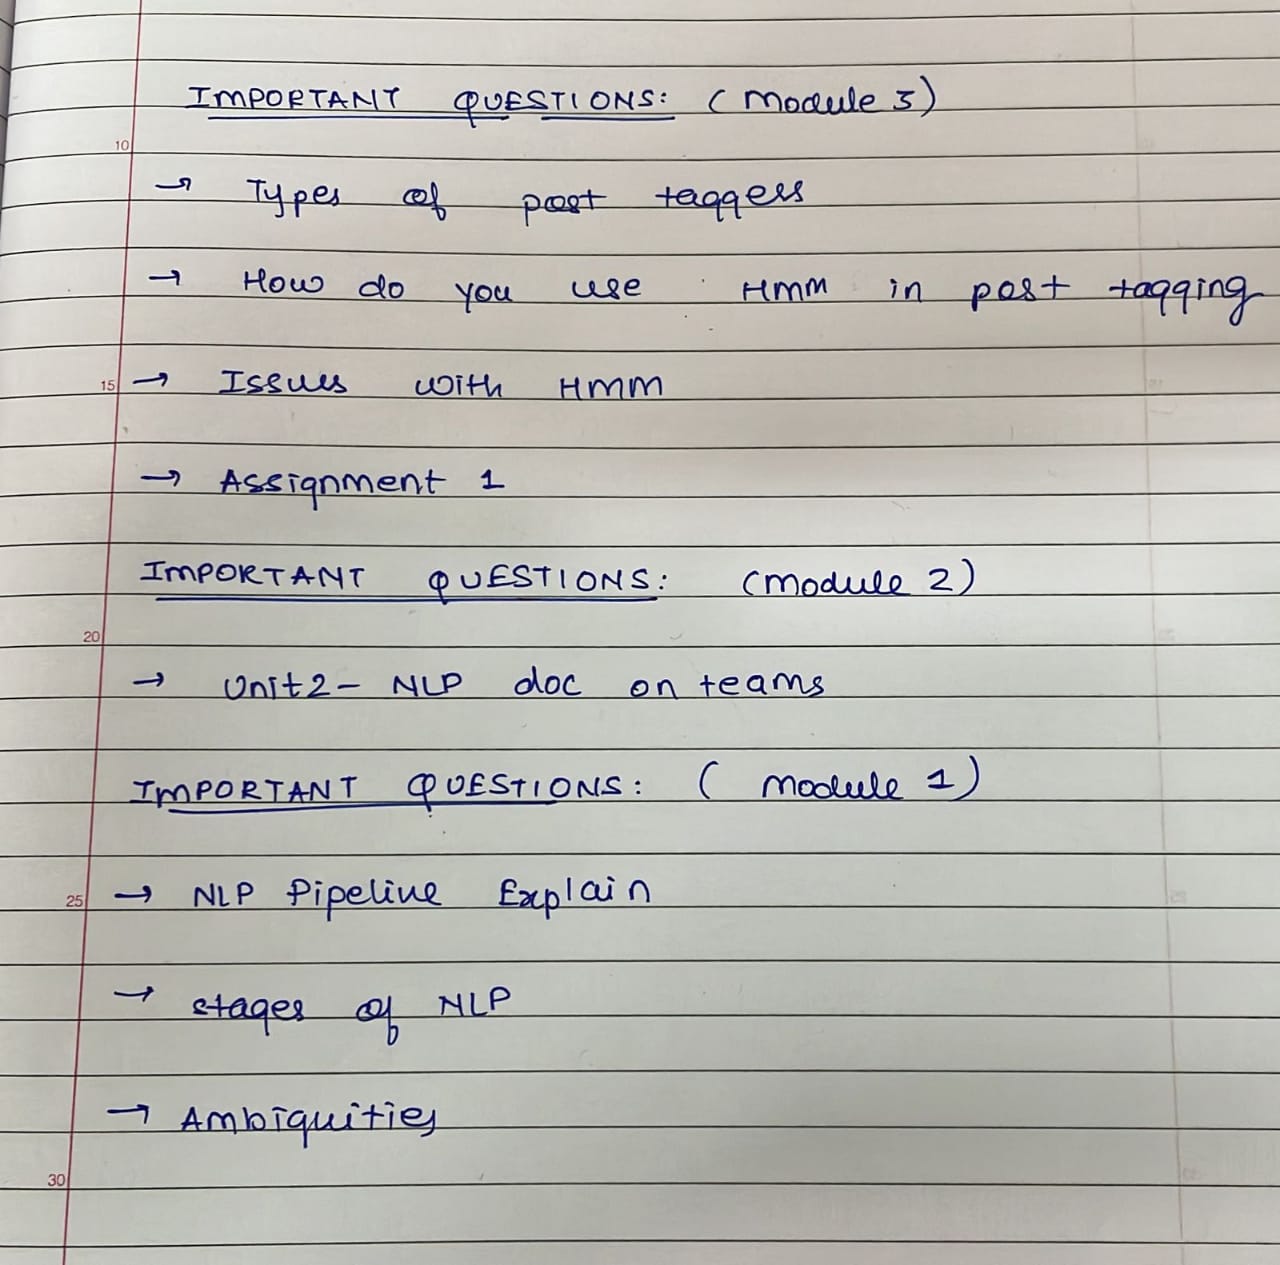 IMPORTANT QUESTIONS: (Module 3)
10
→ Types of post taggers
→ How do you use HMM in post tagging
15 → Issues with HMM
→ Assignment 1
IMPORTANT QUESTIONS: (Module 2)
20
→ Unit2- NLP doc on teams
IMPORTANT QUESTIONS: ( Module 1)
25 → NLP Pipeline Explain
→ stages of NLP
→ Ambiguities
30